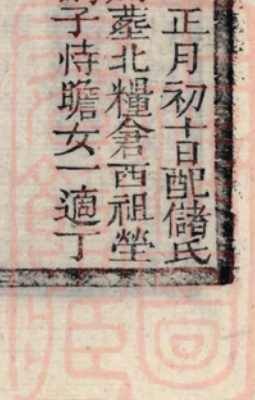 正月初十日配儲氏
葬北糧倉西祖塋
子恃瞻女一適丁